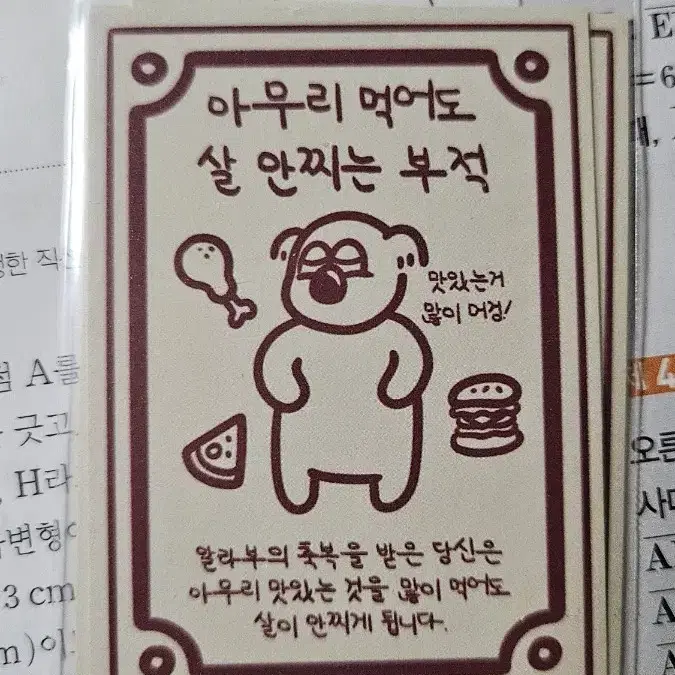 아무리 먹어도
살 안찌는 부적
맛있는거
많이 머겅!
알라부의 축복을 받은 당신은
아무리 맛있는 것을 많이 먹어도
살이 안찌게 됩니다.
점 A를
긋고
H라
변형
3 cm
m)이
= 6
4
오른
사다
A
A
A